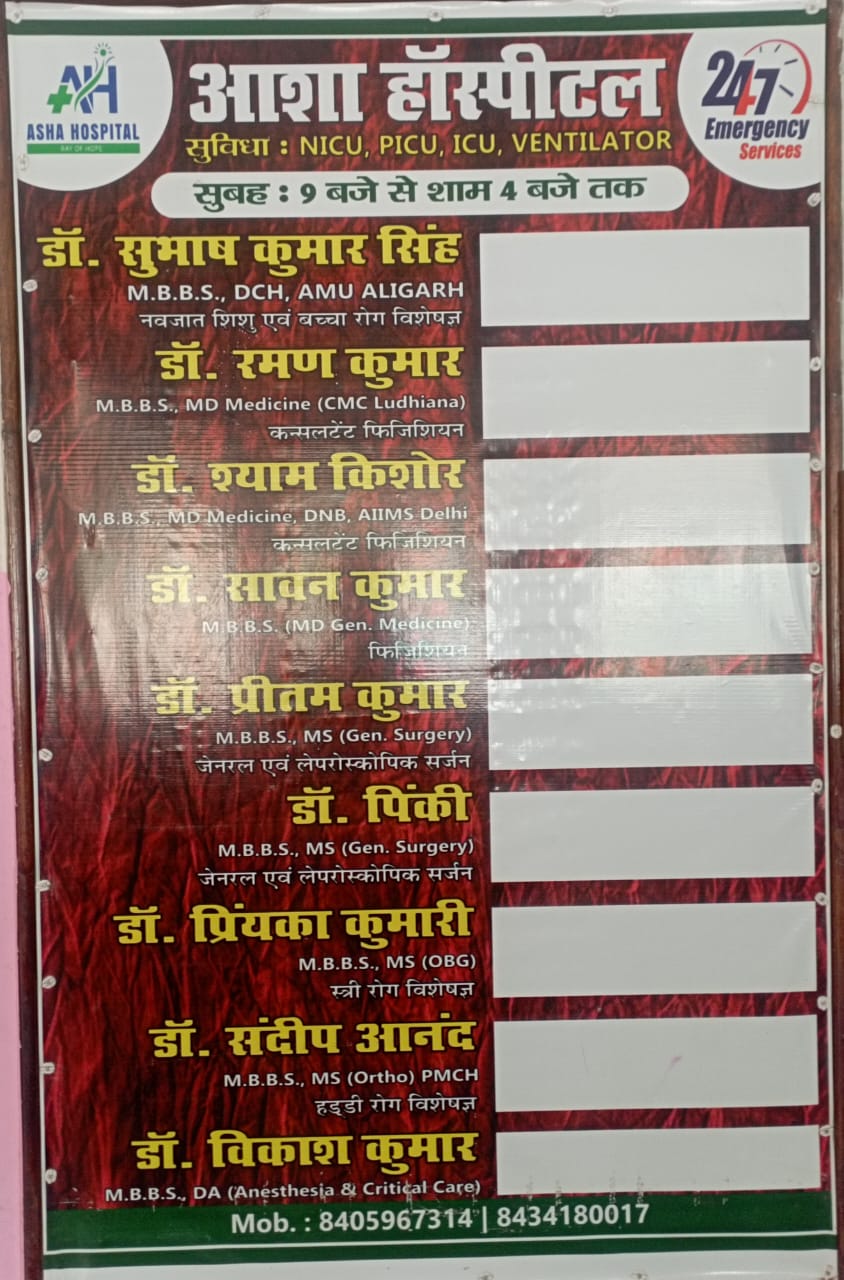 ASHA HOSPITAL
RAY OF HOPE
आशा हॉस्पीटल
24x7
Emergency
Services
सुविधा : NICU, PICU, ICU, VENTILATOR
सुबह : 9 बजे से शाम 4 बजे तक
डॉ. सुभाष कुमार सिंह
M.B.B.S., DCH, AMU ALIGARH
नवजात शिशु एवं बच्चा रोग विशेषज्ञ
डॉ. रमण कुमार
M.B.B.S., MD Medicine (CMC Ludhiana)
कन्सलटेंट फिजिशियन
डॉ. श्याम किशोर
M.B.B.S., MD Medicine, DNB, AIIMS Delhi
कन्सलटेंट फिजिशियन
डॉ. सावन कुमार
M.B.B.S. (MD Gen. Medicine)
फिजिशियन
डॉ. प्रीतम कुमार
M.B.B.S., MS (Gen. Surgery)
जेनरल एवं लेपरोस्कोपिक सर्जन
डॉ. पिंकी
M.B.B.S., MS (Gen. Surgery)
जेनरल एवं लेपरोस्कोपिक सर्जन
डॉ. प्रिंयका कुमारी
M.B.B.S., MS (OBG)
स्त्री रोग विशेषज्ञ
डॉ. संदीप आनंद
M.B.B.S., MS (Ortho) PMCH
हड्डी रोग विशेषज्ञ
डॉ. विकाश कुमार
M.B.B.S., DA (Anesthesia & Critical Care)
Mob. : 8405967314 | 8434180017